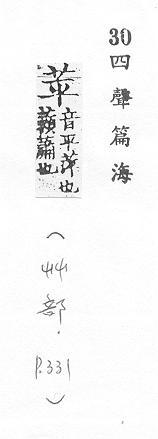 30 四聲篇海
苹 音平茂也
藾蕭也
(艸部．P.331)